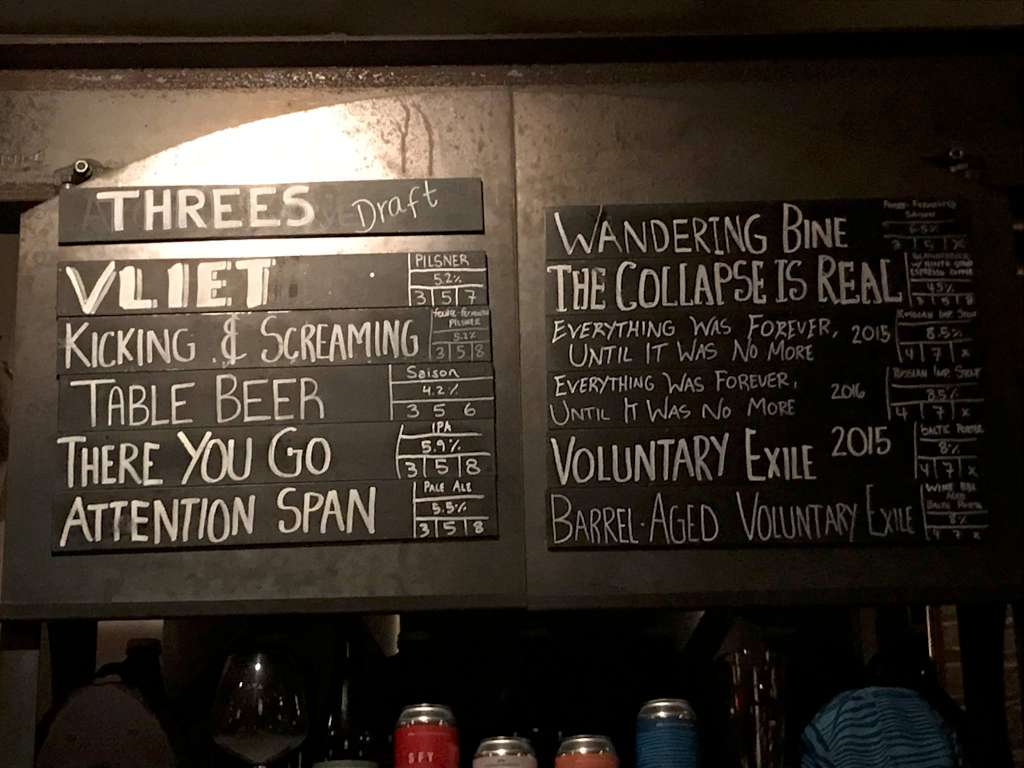 THREES Draft
VLIET
PILSNER
5.2%
3 5 7
KICKING & SCREAMING
PILSNER
5.2%
3 5 8
TABLE BEER
Saison
4.2%
3 5 6
THERE YOU GO
IPA
5.9%
3 5 8
ATTENTION SPAN
PALE ALE
5.5%
3 5 8
WANDERING BINE
SAISON
6.5%
7 5 X
THE COLLAPSE IS REAL
ESPRESSO COFFEE
4.5%
3 5 8
EVERYTHING WAS FOREVER,
UNTIL IT WAS NO MORE
2015
RUSSIAN IMP. STOUT
8.5%
4 7 X
EVERYTHING WAS FOREVER,
UNTIL IT WAS NO MORE
2016
RUSSIAN IMP. STOUT
8.5%
4 7 X
VOLUNTARY EXILE 2015
BALTIC PORTER
8%
4 7 X
BARREL-AGED VOLUNTARY EXILE
WINE BBL
AGED
BALTIC PORTER
8%
4 7 X
SFY